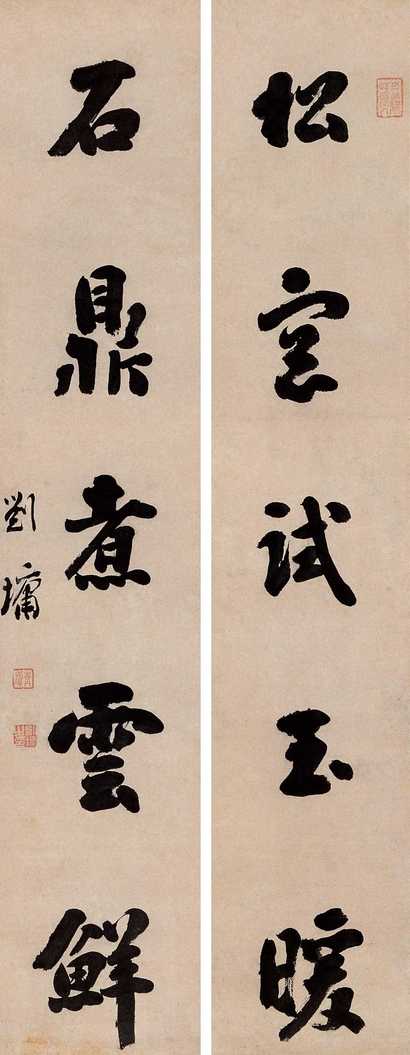 松窓試玉暖
石鼎煮雲鮮
劉墉